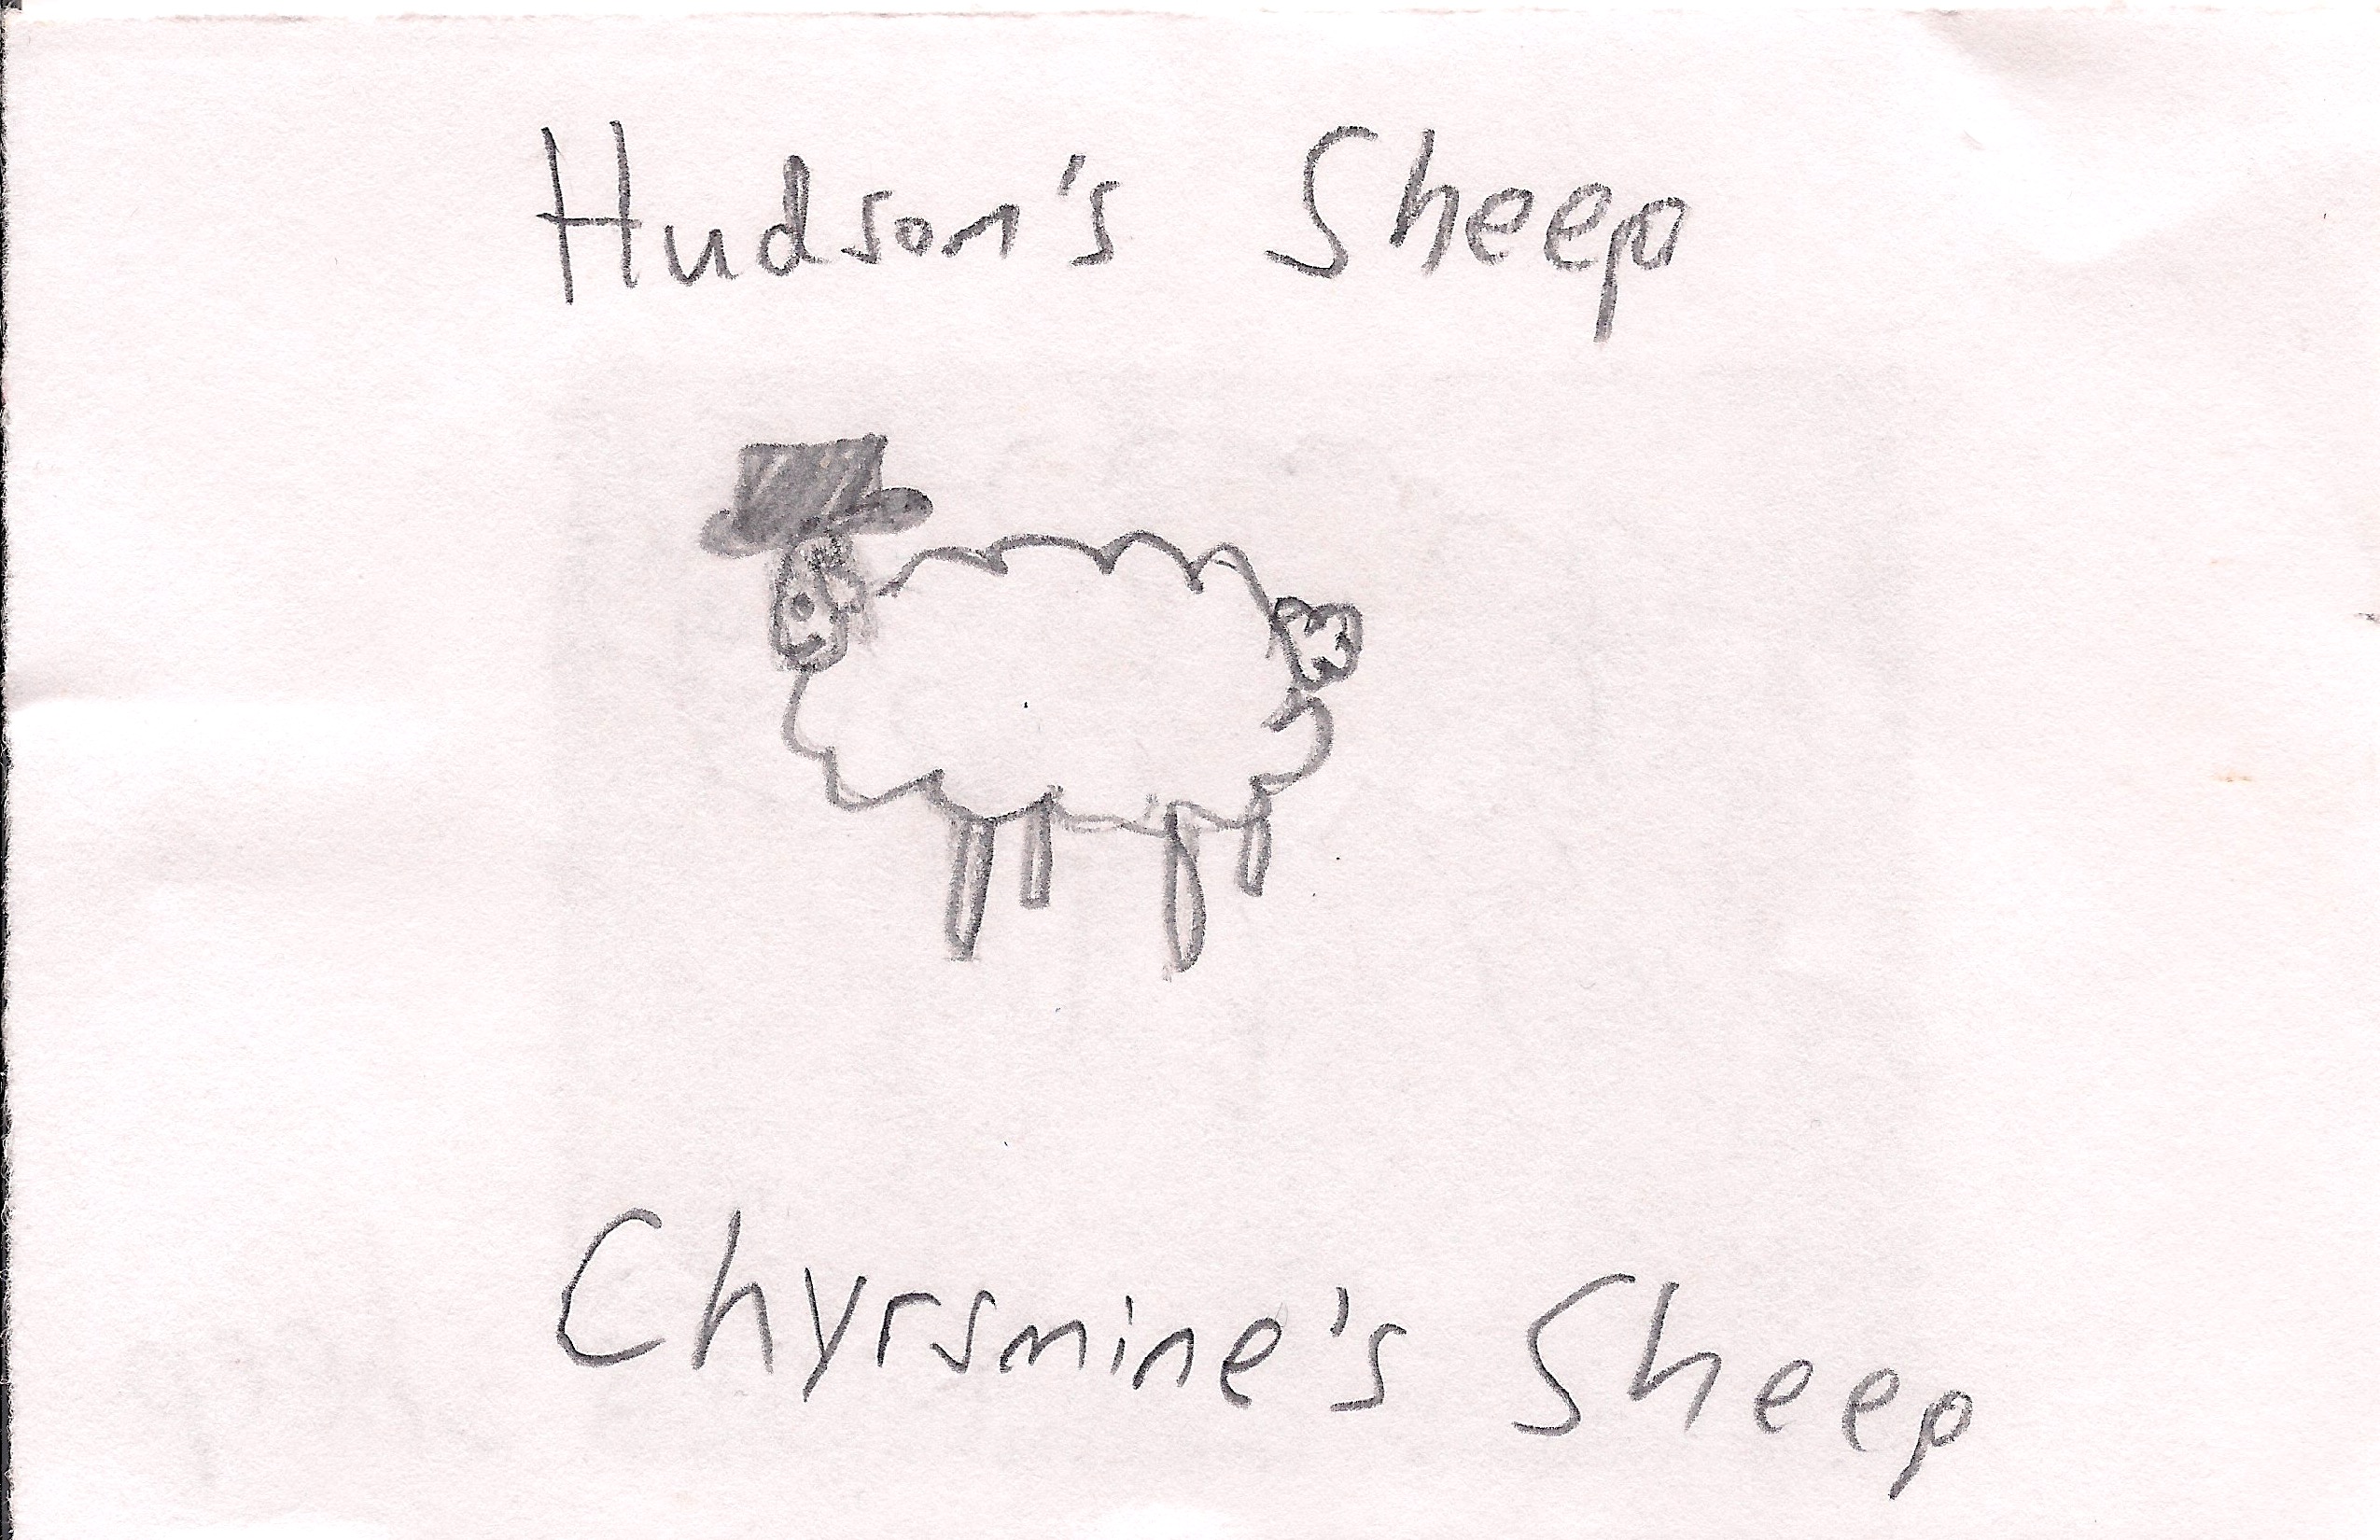 Hudson's Sheep
Chyrsmine's Sheep